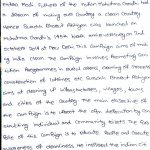 Indian Modi Father of the Indian Mahatma Gandhi had
a Dream of making our Country a clean Country.
Hence Swachh Bharat Abhiyan was launched on
Mahatma Gandhi's 145th birth anniversary on 2nd
October 2014 at New Delhi. This Campaign aims at mak
ing India clean. The Campaign involves Promoting San
itation Programmes in rural areas, cleaning of streets
construction of latrines etc. Swachh Bharat Abhiyan
aims at cleaning of infrastructures, villages, towns
and cities of the country. The main objective of
the campaign is to About the
enabling individual and Community toilets. The
Role of this campaign is to educate People and create
awareness of cleanliness the Indian Cit